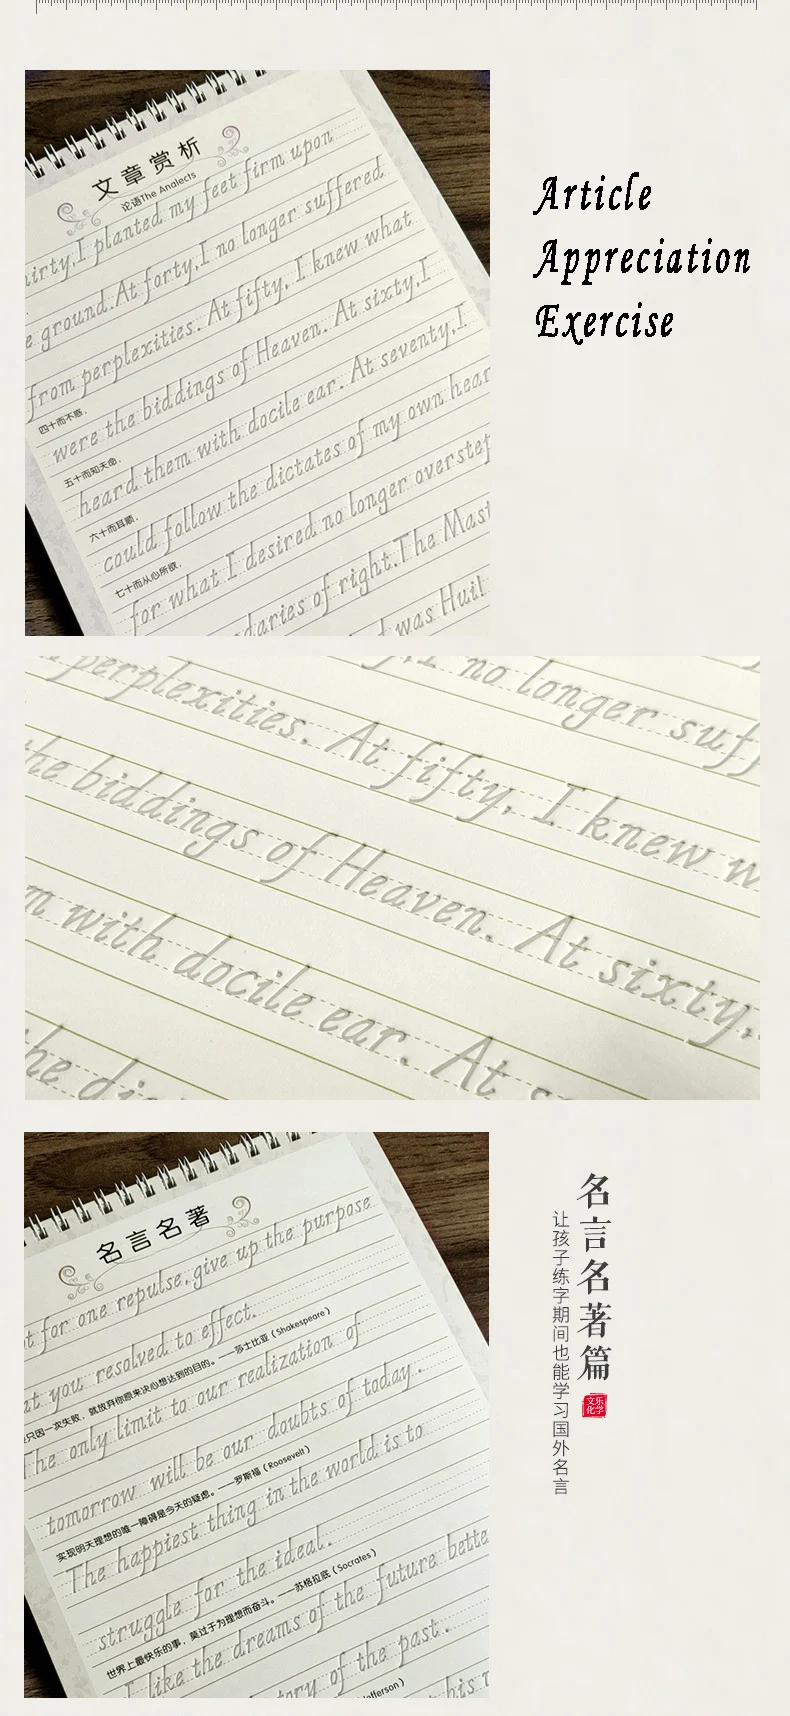 文章赏析
论语The Analects
hirty,I planted my feet firm upon
e ground.At forty,I no longer suffered
from perplexities. At fifty, I knew what
四十而不惑,
were the biddings of Heaven. At sixty,I
五十而知天命,
heard them with docile ear. At seventy,I
六十而耳顺,
could follow the dictates of my own hear
七十而从心所欲,
for what I desired no longer overstep
daries of right.The Mast
was Hui!
Article
Appreciation
Exercise
,I no longer suff
perplexities. At fifty, I knew w
the biddings of Heaven. At sixty,
m with docile ear. At s
the dic
名言名著
t for one repulse,give up the purpose
at you resolved to effect.
只因一次失败，就放弃你原来决心想达到的目的。——莎士比亚（Shakespeare）
The only limit to our realization of
tomorrow will be our doubts of today.
实现明天理想的唯一障碍是今天的疑虑。——罗斯福（Roosevelt）
The happiest thing in the world is to
struggle for the ideal.
世界上最快乐的事，莫过于为理想而奋斗。——苏格拉底（Socrates）
I like the dreams of the future bette
tory of the past.
fferson）
名言名著篇
让孩子练字期间也能学习国外名言
乐学文化